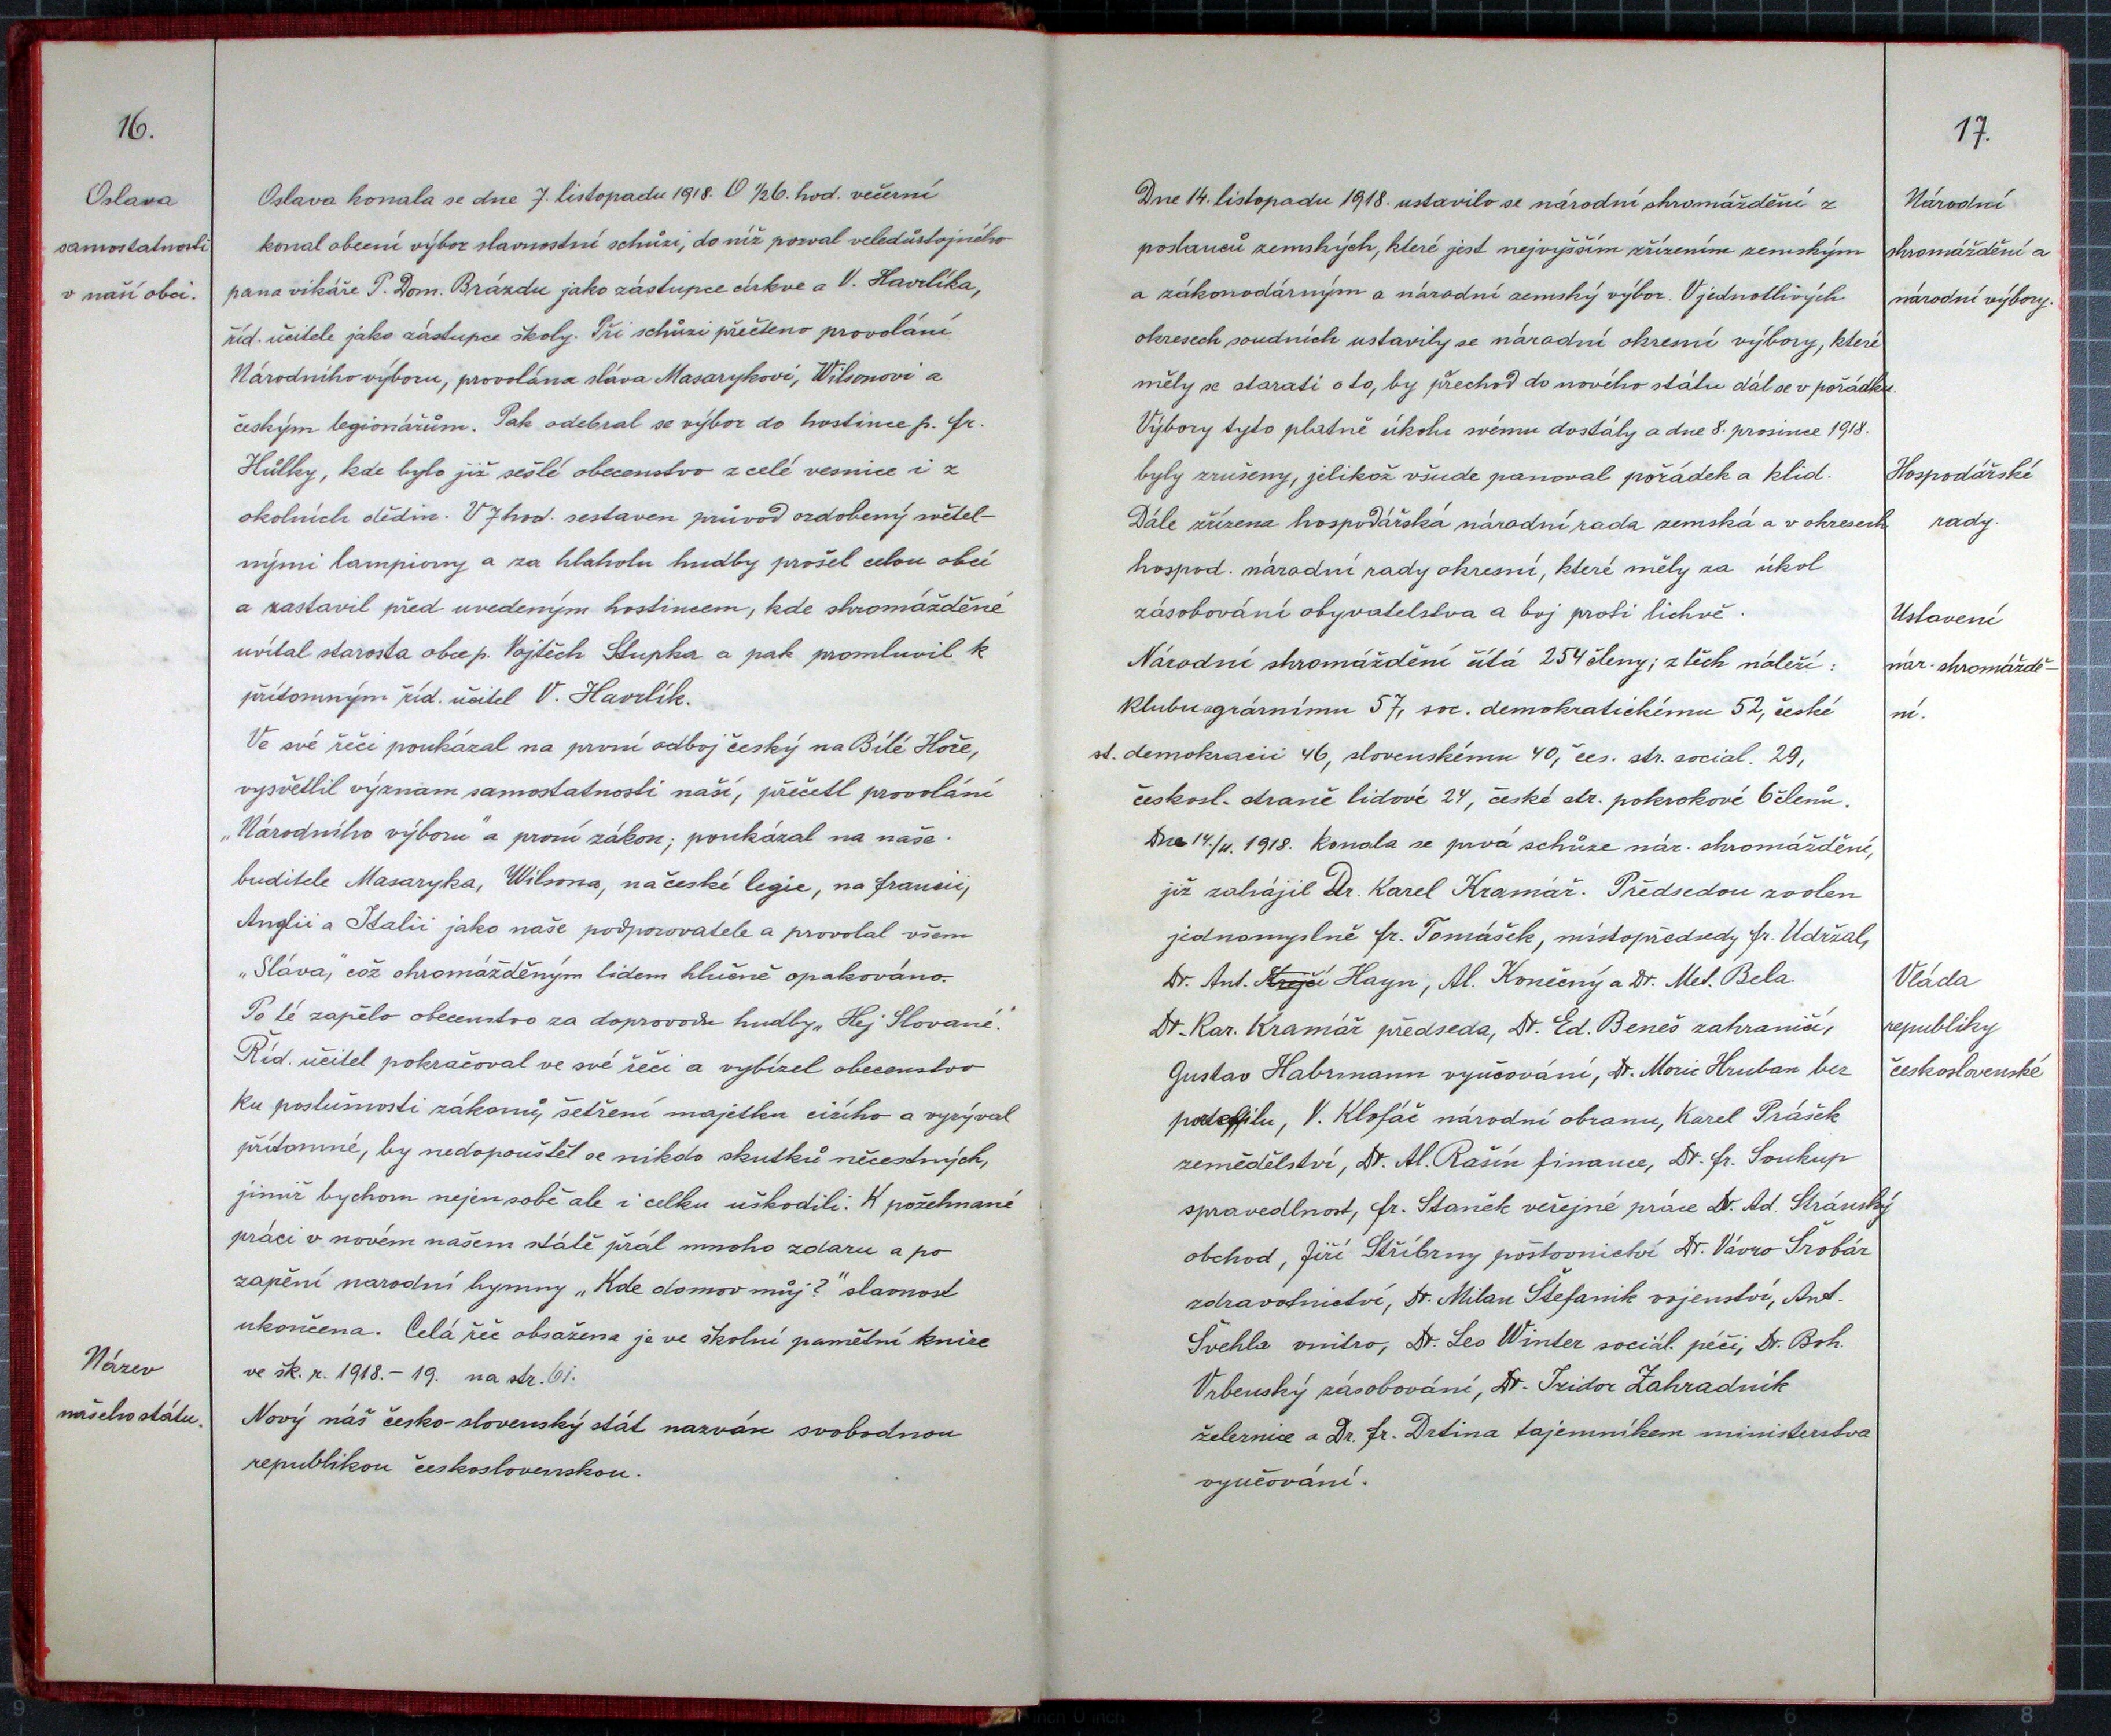 16.
Oslava
samostatnosti
v naší obci.
Oslava konala se dne 7. listopadu 1918. O ½6. hod. večerní
konal obecní výbor slavnostní schůzi, do níž pozval veledůstojného
pana vikáře P. Dom. Brázdu jako zástupce církve a V. Havrlíka,
říd. učitele jako zástupce školy. Při schůzi přečteno provolání
Národního výboru, provolána sláva Masarykovi, Wilsonovi a
českým legionářům. Pak odebral se výbor do hostince p. Fr.
Hůlky, kde bylo již sešlé obecenstvo z celé vesnice i z
okolních dědin. V 7 hod. sestaven průvod ozdobený světel-
nými lampiony a za hlaholu hudby prošel celou obcí
a zastavil před uvedeným hostincem, kde shromážděné
uvítal starosta obce p. Vojtěch Stupka a pak promluvil k
přítomným říd. učitel V. Havrlík.
Ve své řeči poukázal na první odboj český na Bílé Hoře,
vysvětlil význam samostatnosti naší, přečetl provolání
„Národního výboru" a první zákon; poukázal na naše
buditele Masaryka, Wilsona, na české legie, na Francii,
Anglii a Italii jako naše podporovatele a provolal všem
„Sláva," což shromážděným lidem hlučně opakováno.
Po té zapělo obecenstvo za doprovodu hudby „Hej Slované."
Říd. učitel pokračoval ve své řeči a vybízel obecenstvo
ku poslušnosti zákonů, šetření majetku cizího a vyzýval
přítomné, by nedopouštěl se nikdo skutků nečestných,
jimiž bychom nejen sobě ale i celku uškodili. K požehnané
práci v novém našem státě přál mnoho zdaru a po
zapění narodní hymny „Kde domov můj?" slavnost
ukončena. Celá řeč obsažena je ve školní pamětní knize
ve šk. r. 1918.-19. na str. 61.
Název
našeho státu.
Nový náš česko-slovenský stát nazván svobodnou
republikou československou.
17.
Dne 14. listopadu 1918. ustavilo se národní shromáždění z
poslanců zemských, které jest nejvyšším zřízením zemským
a zákonodárným a národní zemský výbor. V jednotlivých
okresech soudních ustavily se národní okresní výbory, které
měly se starati o to, by přechod do nového státu dál se v pořádku.
Výbory tyto platně úkolu svému dostály a dne 8. prosince 1918.
byly zrušeny, jelikož všude panoval pořádek a klid.
Dále zřízena hospodářská národní rada zemská a v okresech
hospod. národní rady okresní, které měly za úkol
zásobování obyvatelstva a boj proti lichvě.
Národní shromáždění čítá 254 členy; z těch náleží:
klubu agrárnímu 57, soc. demokratickému 52, české
st. demokracii 46, slovenskému 40, čes. str. social. 29,
českosl. straně lidové 24, české str. pokrokové 6 členů.
Dne 14./11. 1918. konala se prvá schůze nár. shromáždění,
již zahájil Dr. Karel Kramář. Předsedou zvolen
jednomyslně Fr. Tomášek, místopředsedy Fr. Udržal,
Dr. Ant. Krejčí Hayn, Al. Konečný a Dr. Met. Bela
Dr. Kar. Kramář předseda, Dr. Ed. Beneš zahraničí,
Gustav Habrmann vyučování, Dr. Moric Hruban bez
portefilu, V. Klofáč národní obranu, Karel Prášek
zemědělství, Dr. Al. Rašín finance, Dr. Fr. Soukup
spravedlnost, Fr. Staněk veřejné práce Dr. Ad. Stránský
obchod, Jiří Stříbrny poštovnictví Dr. Vávro Šrobár
zdravotnictví, Dr. Milan Štefanik vojenství, Ant.
Švehla vnitro, Dr. Leo Winter sociál. péči, Dr. Boh.
Vrbenský zásobování, Dr. Izidor Zahradník
železnice a Dr. Fr. Drtina tajemníkem ministerstva
vyučování.
Národní
shromáždění a
národní výbory.
Hospodářské
rady.
Ustavení
nár. shromáždě-
ní.
Vláda
republiky
československé
9 8 inch 0 inch 1 2 3 4 5 6 7 8